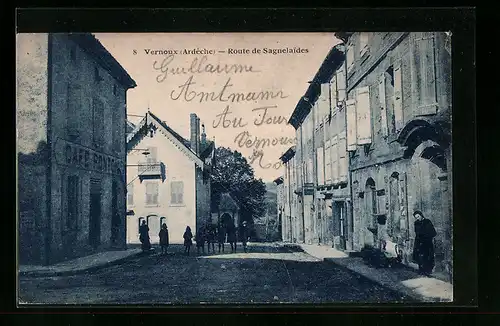 8 Vernoux (Ardèche) — Route de Sagnelaïdes
Guillaume
Au Tour
Vernoux
CAFÉ